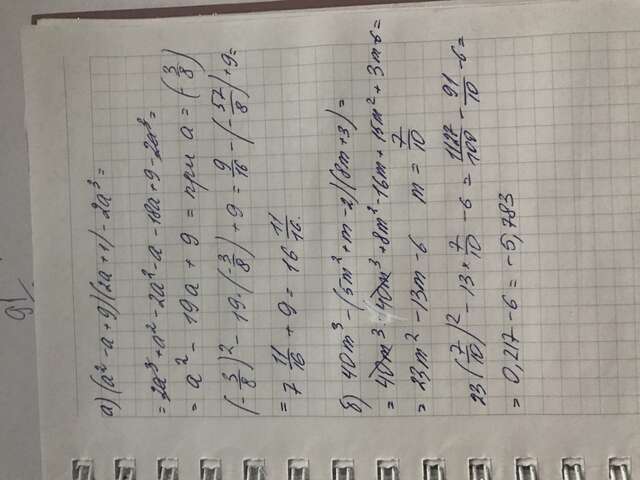 91
а) (a² - a + 9)(2a + 1) - 2a³ =
= 2a³ + a² - 2a² - a - 18a + 9 - 2a³ =
= a² - 19a + 9 = при a = (-3/8)
(-3/8)² - 19·(-3/8) + 9 = 9/16 - (-57/8) + 9 =
= 7 11/16 + 9 = 16 11/16.
б) 40m³ - (5m² + m - 2)(8m + 3) =
= 40m³ - 40m³ + 8m² - 16m + 15m² + 3m - 6 =
= 23m² - 13m - 6 m = 7/10
23(7/10)² - 13 × 7/10 - 6 = 1127/100 - 91/10 - 6 =
= 0,217 - 6 = -5,783